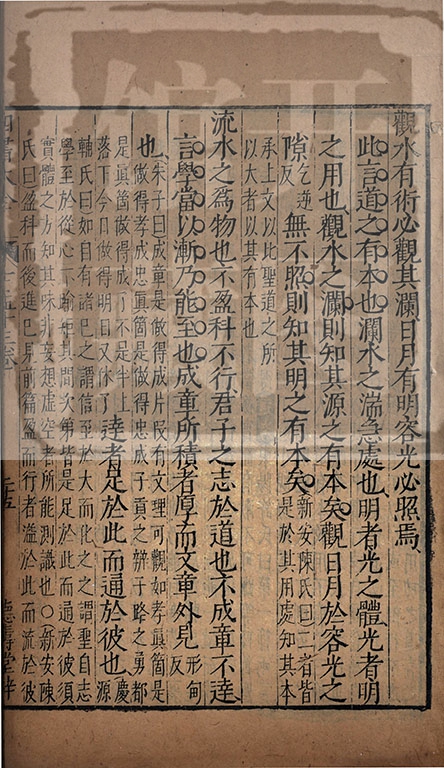 觀水有術必觀其瀾日月有明容光必照焉
此言道之有本也瀾水之湍急處也明者光之體光者明
之用也觀水之瀾則知其源之有本矣觀日月於容光之
隙乞逆反無不照則知其明之有本矣新安陳氏曰二者皆是於其用處知其本
承上文以比聖道之所
以大者以其有本也
流水之爲物也不盈科不行君子之志於道也不成章不達
言學當以漸乃能至也成章所積者厚而文章外見形甸反
也朱子曰成章是做得成片段有文理可觀如孝眞箇是
做得孝成忠眞箇是做得忠成子貢之辨子路之勇都
是眞箇做得成了不是半上
落下今日做得明日又休了達者足於此而通於彼也慶源
輔氏曰如自有諸已之謂信至於大而化之之謂聖自志
學至於從心不踰矩其間次第皆是足於此而通於彼須
實體之方知其味非妄想虛空者所能測識也○新安陳
氏曰盈科而後進已見前篇盈而行者溢於此而流於彼
德壽堂梓